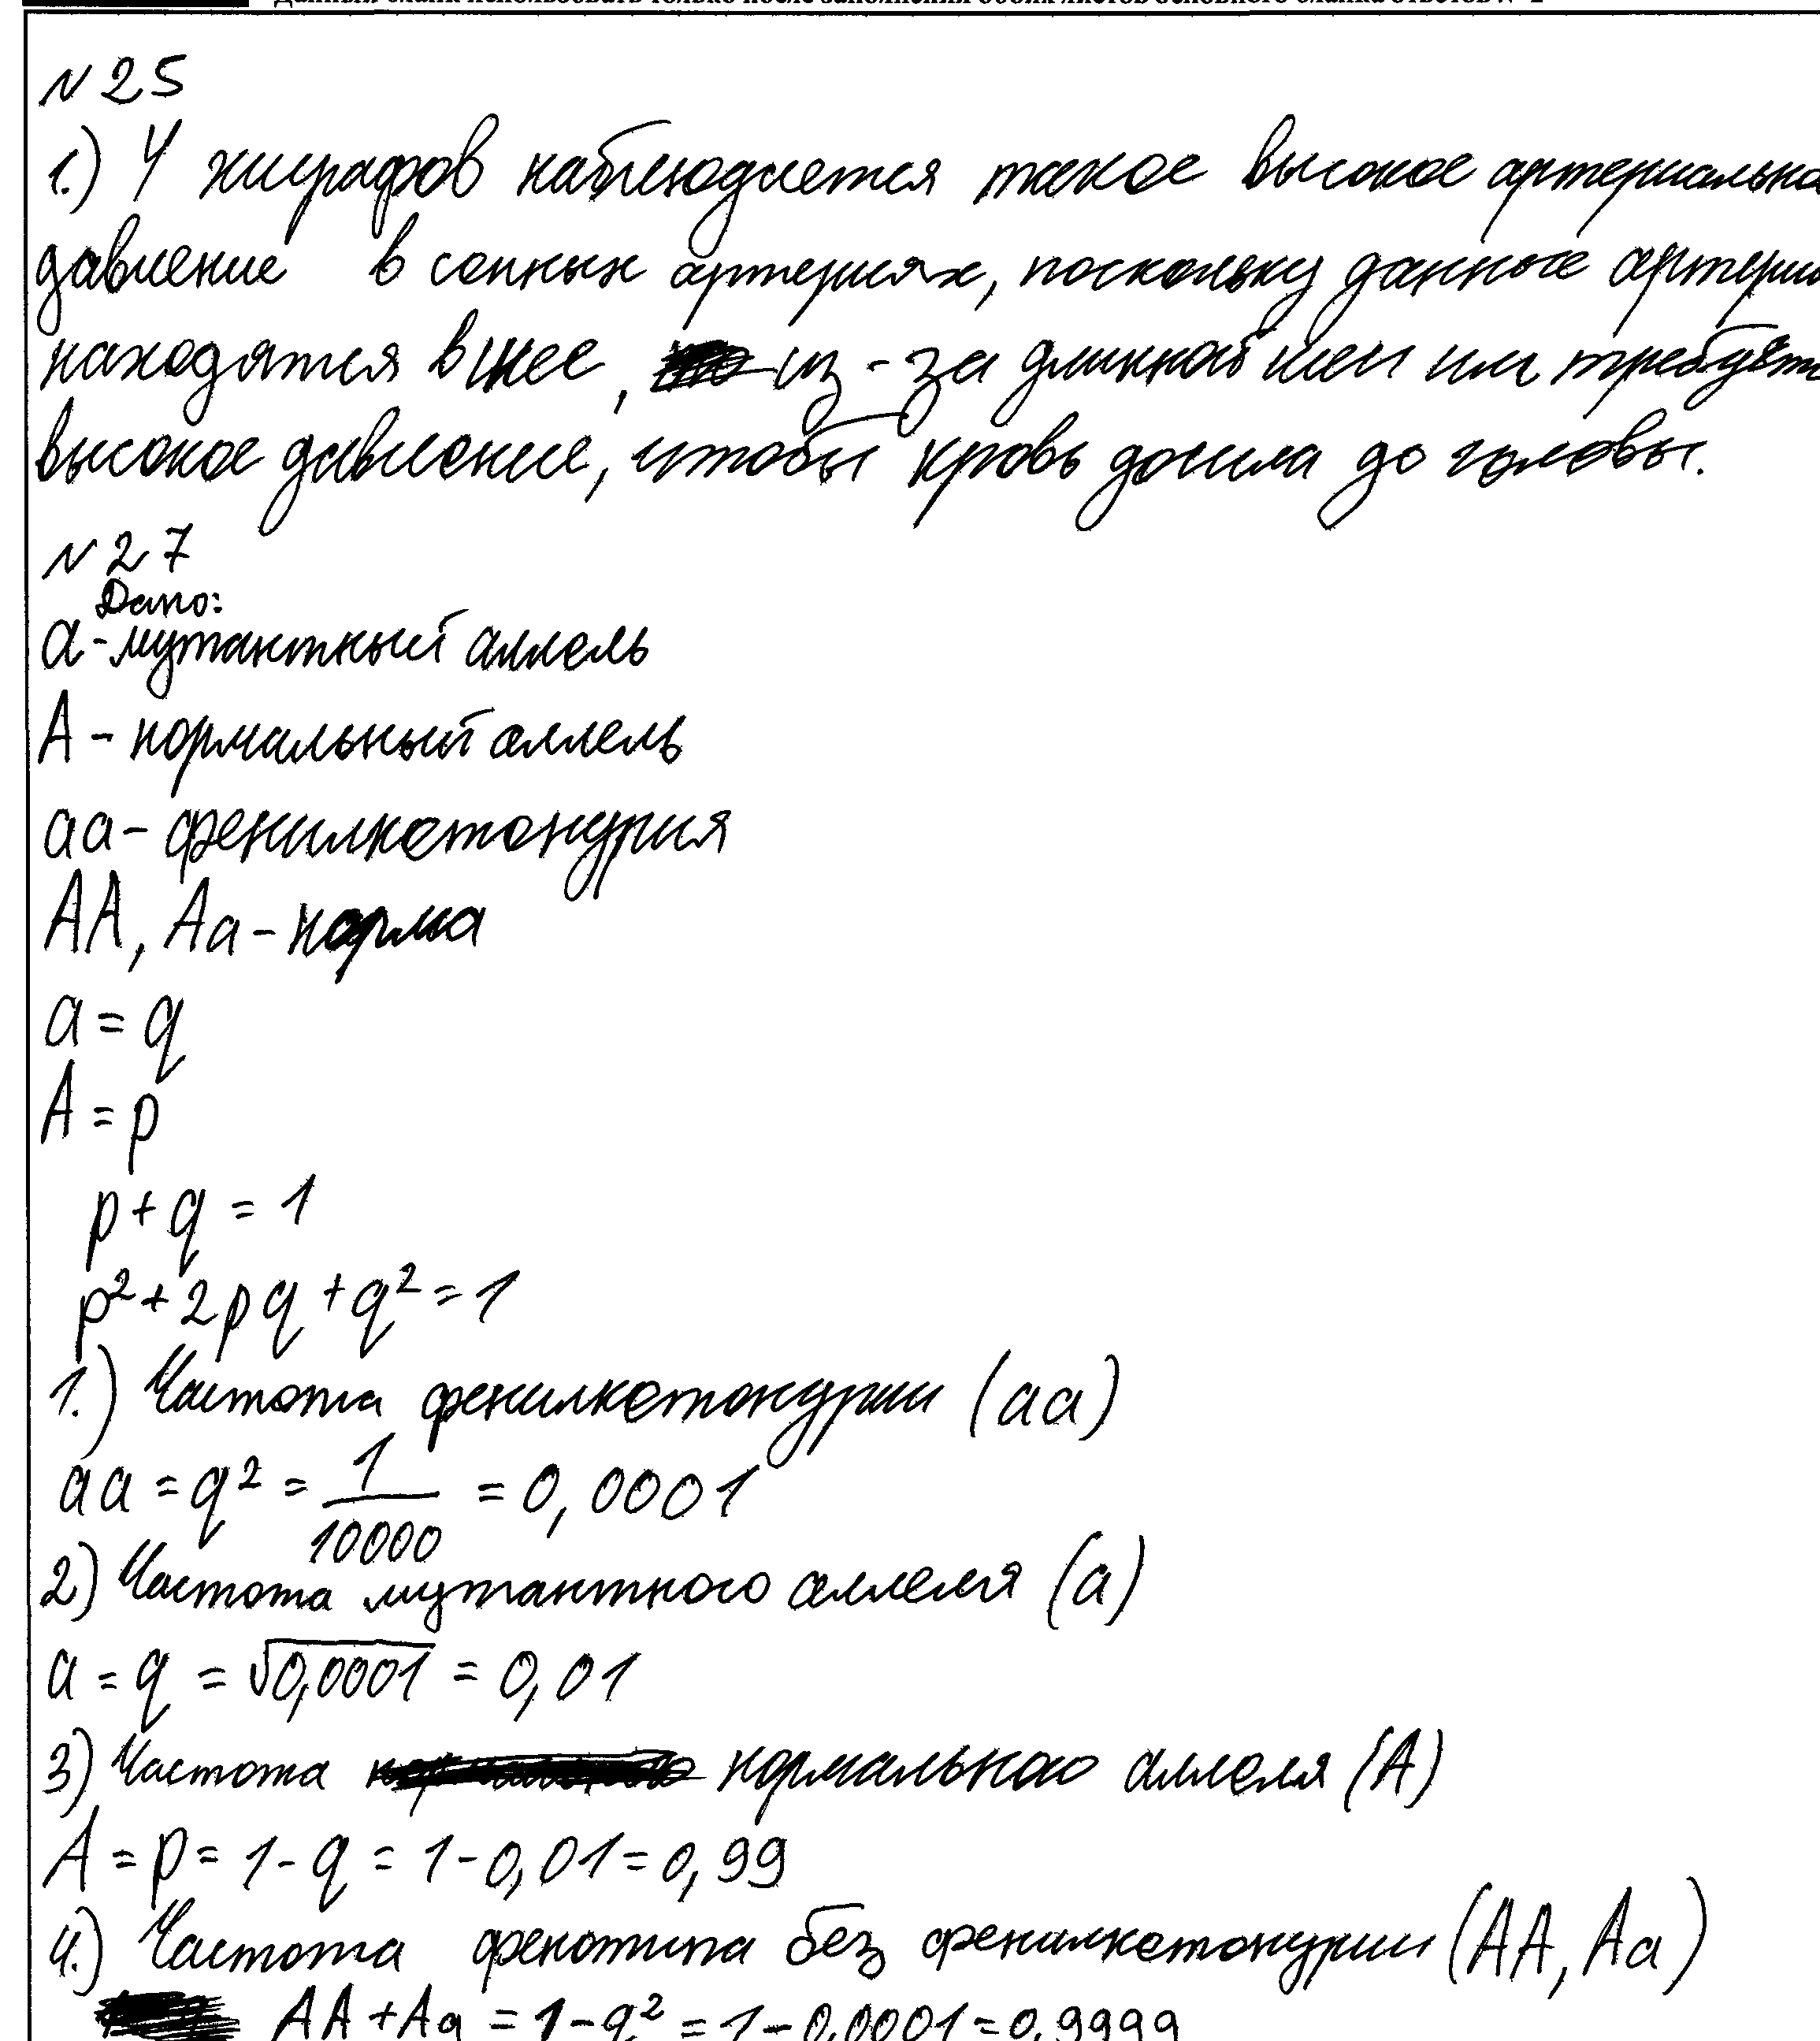 Данный бланк использовать только после заполнения обоих листов основного бланка ответов № 2
№25
1.) У жирафов наблюдается такое высокое артериально
давление в сонных артериях, поскольку данные артери
находятся в шее, из-за длинной шеи им требует
высокое давление, чтобы кровь дошла до головы.
№27
Дано:
a - мутантный аллель
A - нормальный аллель
aa - фенилкетонурия
AA, Aa - норма
a = q
A = p
p + q = 1
p² + 2pq + q² = 1
1.) Частота фенилкетонурии (aa)
aa = q² = 1/10000 = 0,0001
2) Частота мутантного аллеля (a)
a = q = √0,0001 = 0,01
3) Частота нормального аллеля (A)
A = p = 1 - q = 1 - 0,01 = 0,99
4.) Частота фенотипа без фенилкетонурии (AA, Aa)
AA + Aa = 1 - q² = 1 - 0,0001 = 0,9999